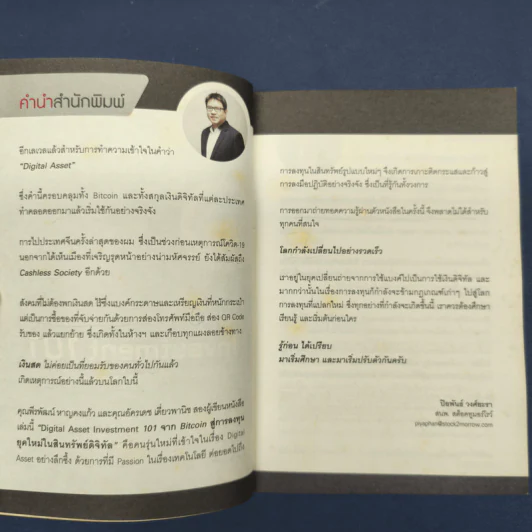 คำนำสำนักพิมพ์
อีกเลเวลแล้วสำหรับการทำความเข้าใจในคำว่า
"Digital Asset"
ซึ่งคำนี้ครอบคลุมทั้ง Bitcoin และทั้งสกุลเงินดิจิทัลที่แต่ละประเทศ
ทำคลอดออกมาแล้วเริ่มใช้กันอย่างจริงจัง
การไปประเทศจีนครั้งล่าสุดของผม ซึ่งเป็นช่วงก่อนเหตุการณ์โควิด-19
นอกจากได้เห็นเมืองที่เจริญรุดหน้าอย่างน่ามหัศจรรย์ ยังได้สัมผัสถึง
Cashless Society อีกด้วย
สังคมที่ไม่ต้องพกเงินสด ใช้ซึ่งแบงค์กระดาษและเหรียญเงินที่หนักกระเป๋า
แต่เป็นการซื้อของที่จับจ่ายกันด้วยการส่องโทรศัพท์มือถือ ส่อง QR Code
รับของ แล้วแยกย้าย ซึ่งเกิดทั้งในห้างฯ และเกือบทุกแผงลอยข้างทาง
เงินสด ไม่ค่อยเป็นที่ยอมรับของคนทั่วไปกันแล้ว
เกิดเหตุการณ์อย่างนี้แล้วบนโลกใบนี้
คุณพีรพัฒน์ หาญคงแก้ว และคุณอัครเดช เดี่ยวพานิช สองผู้เขียนหนังสือ
เล่มนี้ "Digital Asset Investment 101 จาก Bitcoin สู่การลงทุน
ยุคใหม่ในสินทรัพย์ดิจิทัล" คือคนรุ่นใหม่ที่เข้าใจในเรื่อง Digital
Asset อย่างลึกซึ้ง ด้วยการที่มี Passion ในเรื่องเทคโนโลยี ต่อยอดไปถึง
การลงทุนในสินทรัพย์รูปแบบใหม่ๆ จึงเกิดการเกาะติดกระแสและก้าวสู่
การลงมือปฏิบัติอย่างจริงจัง ซึ่งเป็นที่รู้กันทั้งวงการ
การออกมาถ่ายทอดความรู้ผ่านตัวหนังสือในครั้งนี้ จึงพลาดไม่ได้สำหรับ
ทุกคนที่สนใจ
โลกกำลังเปลี่ยนไปอย่างรวดเร็ว
เราอยู่ในยุคเปลี่ยนถ่ายจากการใช้แบงค์ไปเป็นการใช้เงินดิจิทัล และ
มากกว่านั้นในเรื่องการลงทุนก็กำลังจะข้ามกฎเกณฑ์เก่าๆ ไปสู่โลก
การลงทุนที่แปลกใหม่ ซึ่งทุกอย่างที่กำลังจะเกิดขึ้นนี้ เราควรต้องศึกษา
เรียนรู้ และเริ่มต้นก่อนใคร
รู้ก่อน ได้เปรียบ
มาเริ่มศึกษา และมาเริ่มปรับตัวกันครับ
ปิยพันธ์ วงศ์ยะรา
สนพ. สต็อคทูมอร์โรว์
piyaphan@stock2morrow.com